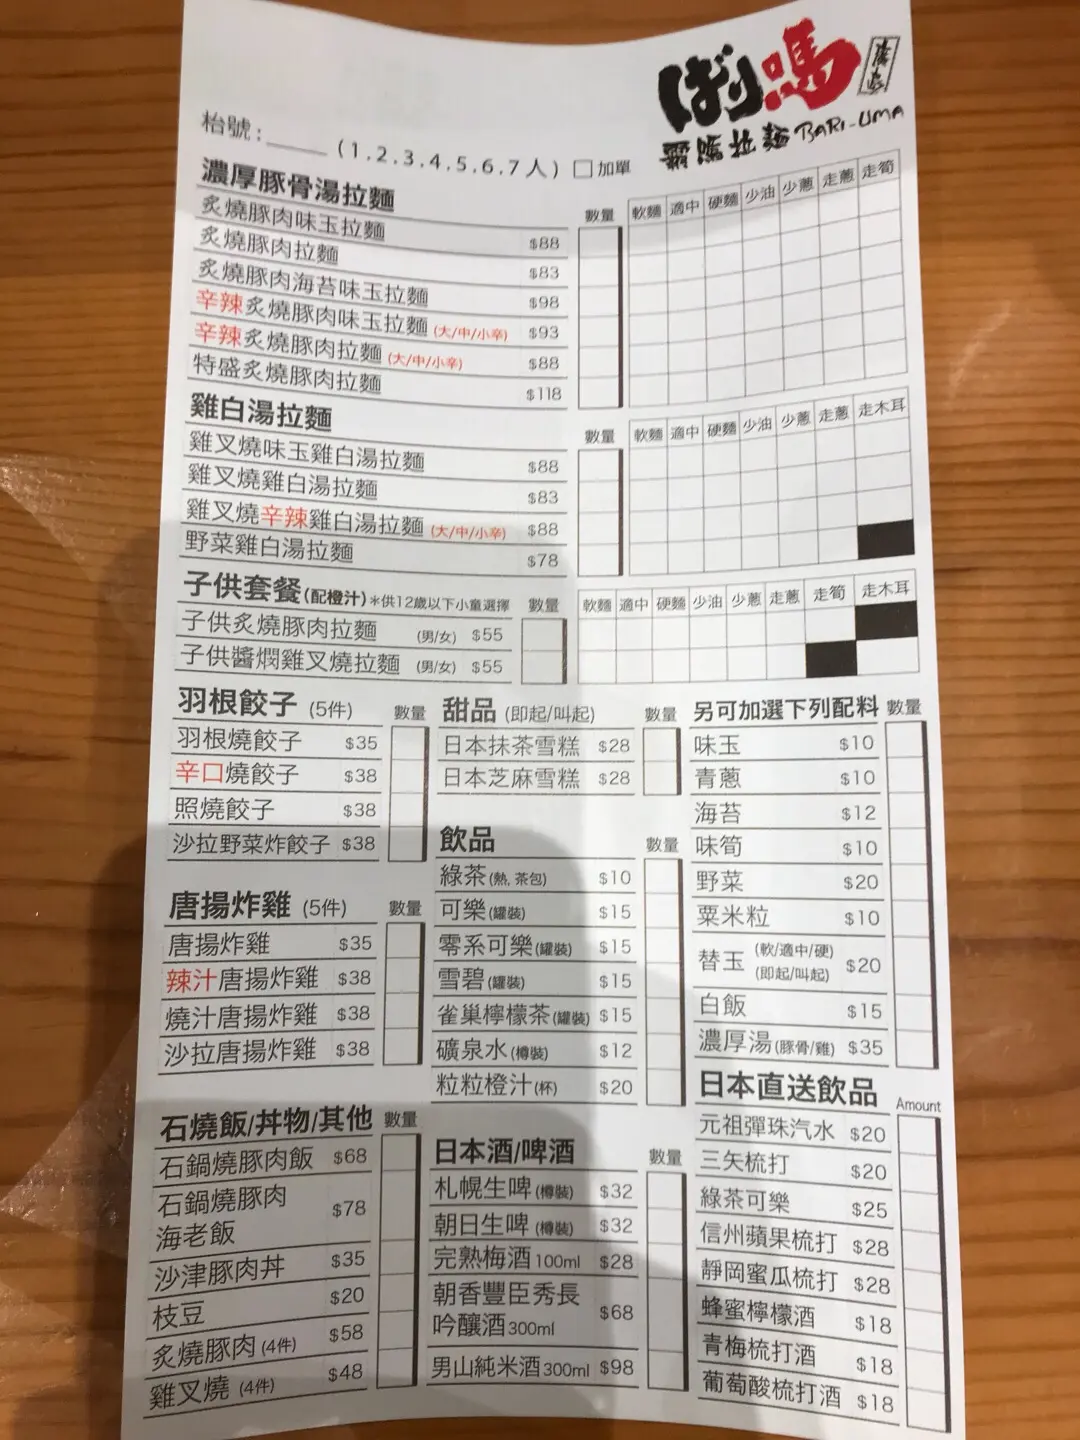 ばり嗎
霸嗎拉麵 BARI-UMA
枱號：____ (1.2.3.4.5.6.7人) □加單
濃厚豚骨湯拉麵 數量 軟麵 適中 硬麵 少油 少蔥 走蔥 走筍
炙燒豚肉味玉拉麵 $88
炙燒豚肉拉麵 $83
炙燒豚肉海苔味玉拉麵 $98
辛辣炙燒豚肉味玉拉麵 (大/中/小辛) $93
辛辣炙燒豚肉拉麵 (大/中/小辛) $88
特盛炙燒豚肉拉麵 $118
雞白湯拉麵 數量 軟麵 適中 硬麵 少油 少蔥 走蔥 走木耳
雞叉燒味玉雞白湯拉麵 $88
雞叉燒雞白湯拉麵 $83
雞叉燒辛辣雞白湯拉麵 (大/中/小辛) $88
野菜雞白湯拉麵 $78
子供套餐(配橙汁) *供12歲以下小童選擇 數量 軟麵 適中 硬麵 少油 少蔥 走蔥 走筍 走木耳
子供炙燒豚肉拉麵 (男/女) $55
子供醬燜雞叉燒拉麵 (男/女) $55
羽根餃子 (5件) 數量
羽根燒餃子 $35
辛口燒餃子 $38
照燒餃子 $38
沙拉野菜炸餃子 $38
唐揚炸雞 (5件) 數量
唐揚炸雞 $35
辣汁唐揚炸雞 $38
燒汁唐揚炸雞 $38
沙拉唐揚炸雞 $38
石燒飯/丼物/其他 數量
石鍋燒豚肉飯 $68
石鍋燒豚肉
海老飯 $78
沙津豚肉丼 $35
枝豆 $20
炙燒豚肉 (4件) $58
雞叉燒 (4件) $48
甜品 (即起/叫起) 數量
日本抹茶雪糕 $28
日本芝麻雪糕 $28
飲品 數量
綠茶(熱, 茶包) $10
可樂(罐裝) $15
零系可樂(罐裝) $15
雪碧(罐裝) $15
雀巢檸檬茶(罐裝) $15
礦泉水(樽裝) $12
粒粒橙汁(杯) $20
日本酒/啤酒 數量
札幌生啤 (樽裝) $32
朝日生啤 (樽裝) $32
完熟梅酒 100ml $28
朝香豐臣秀長
吟釀酒 300ml $68
男山純米酒 300ml $98
另可加選下列配料 數量
味玉 $10
青蔥 $10
海苔 $12
味筍 $10
野菜 $20
粟米粒 $10
替玉 (軟/適中/硬) (即起/叫起) $20
白飯 $15
濃厚湯(豚骨/雞) $35
日本直送飲品 Amount
元祖彈珠汽水 $20
三矢梳打 $20
綠茶可樂 $25
信州蘋果梳打 $28
靜岡蜜瓜梳打 $28
蜂蜜檸檬酒 $18
青梅梳打酒 $18
葡萄酸梳打酒 $18